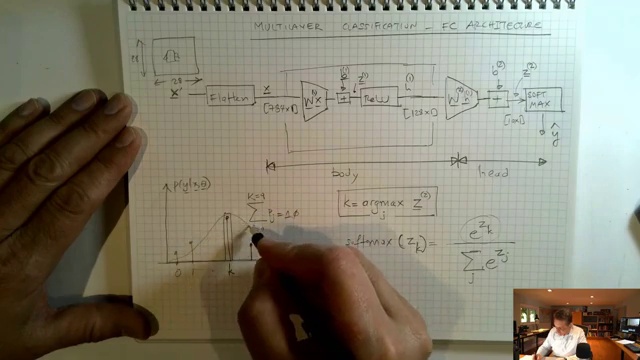 MULTILAYER CLASSIFICATION - FC ARCHITECTURE
28
28
x'
Flatten
x
[784x1]
W⁽¹⁾x
b⁽¹⁾
+
z⁽¹⁾
ReLU
h⁽¹⁾
[128x1]
W⁽²⁾h⁽¹⁾
b⁽²⁾
+
z⁽²⁾
[10x1]
SOFT
MAX
ŷ
body
head
p(y|x,θ)
K=9
∑ p̂ⱼ = 1.0
0 1 k
k = argmax z⁽²⁾
j
softmax (z_k) = e^{z_k}
∑ e^{z_j}
j